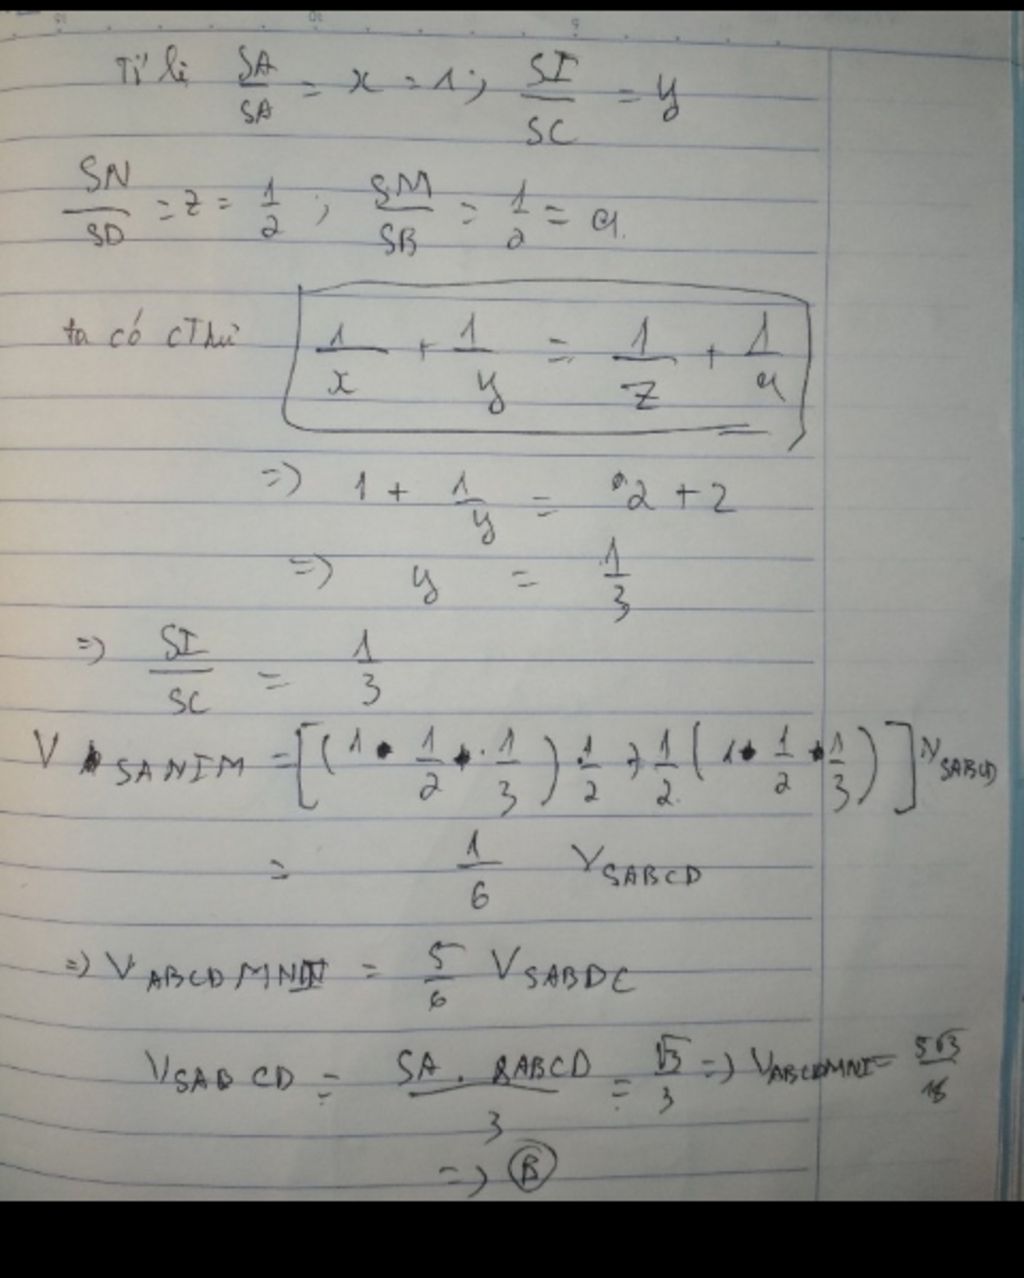 Tỉ lệ SA/SA = x = 1 ; SI/SC = y
SN/SD = z = 1/2 ; SM/SB = 1/2 = a.
ta có cThức 1/x + 1/y = 1/z + 1/a
=> 1 + 1/y = 2 + 2
=> y = 1/3
=> SI/SC = 1/3
V SANIM = [(1 • 1/2 • 1/3) . 1/2 + 1/2 (1 • 1/2 • 1/3)] VSABCD
= 1/6 VSABCD
=> VABCDMNI = 5/6 VSABDC
VSABCD = SA . SABCD/3 = √3/3 => VABCDMNI = 5√3/18
=> B